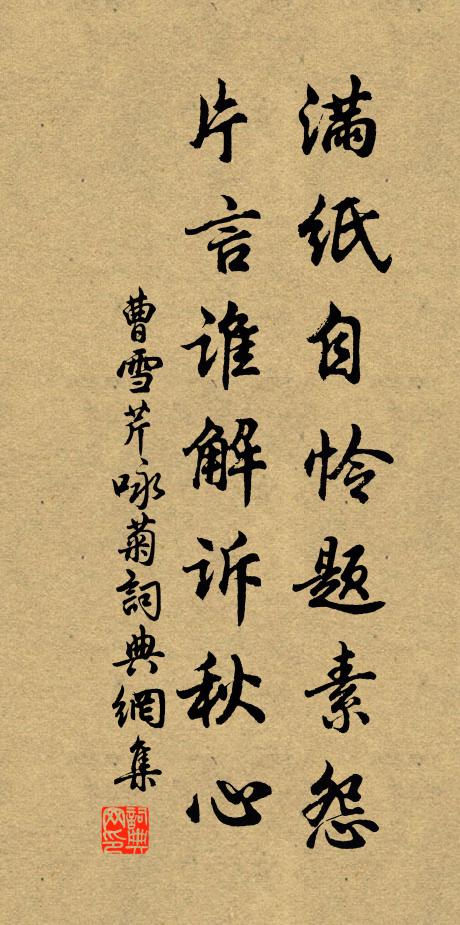 滿紙自怜题素怨
片言谁解诉秋心
曹雪芹咏菊詞典網集
詞典网印